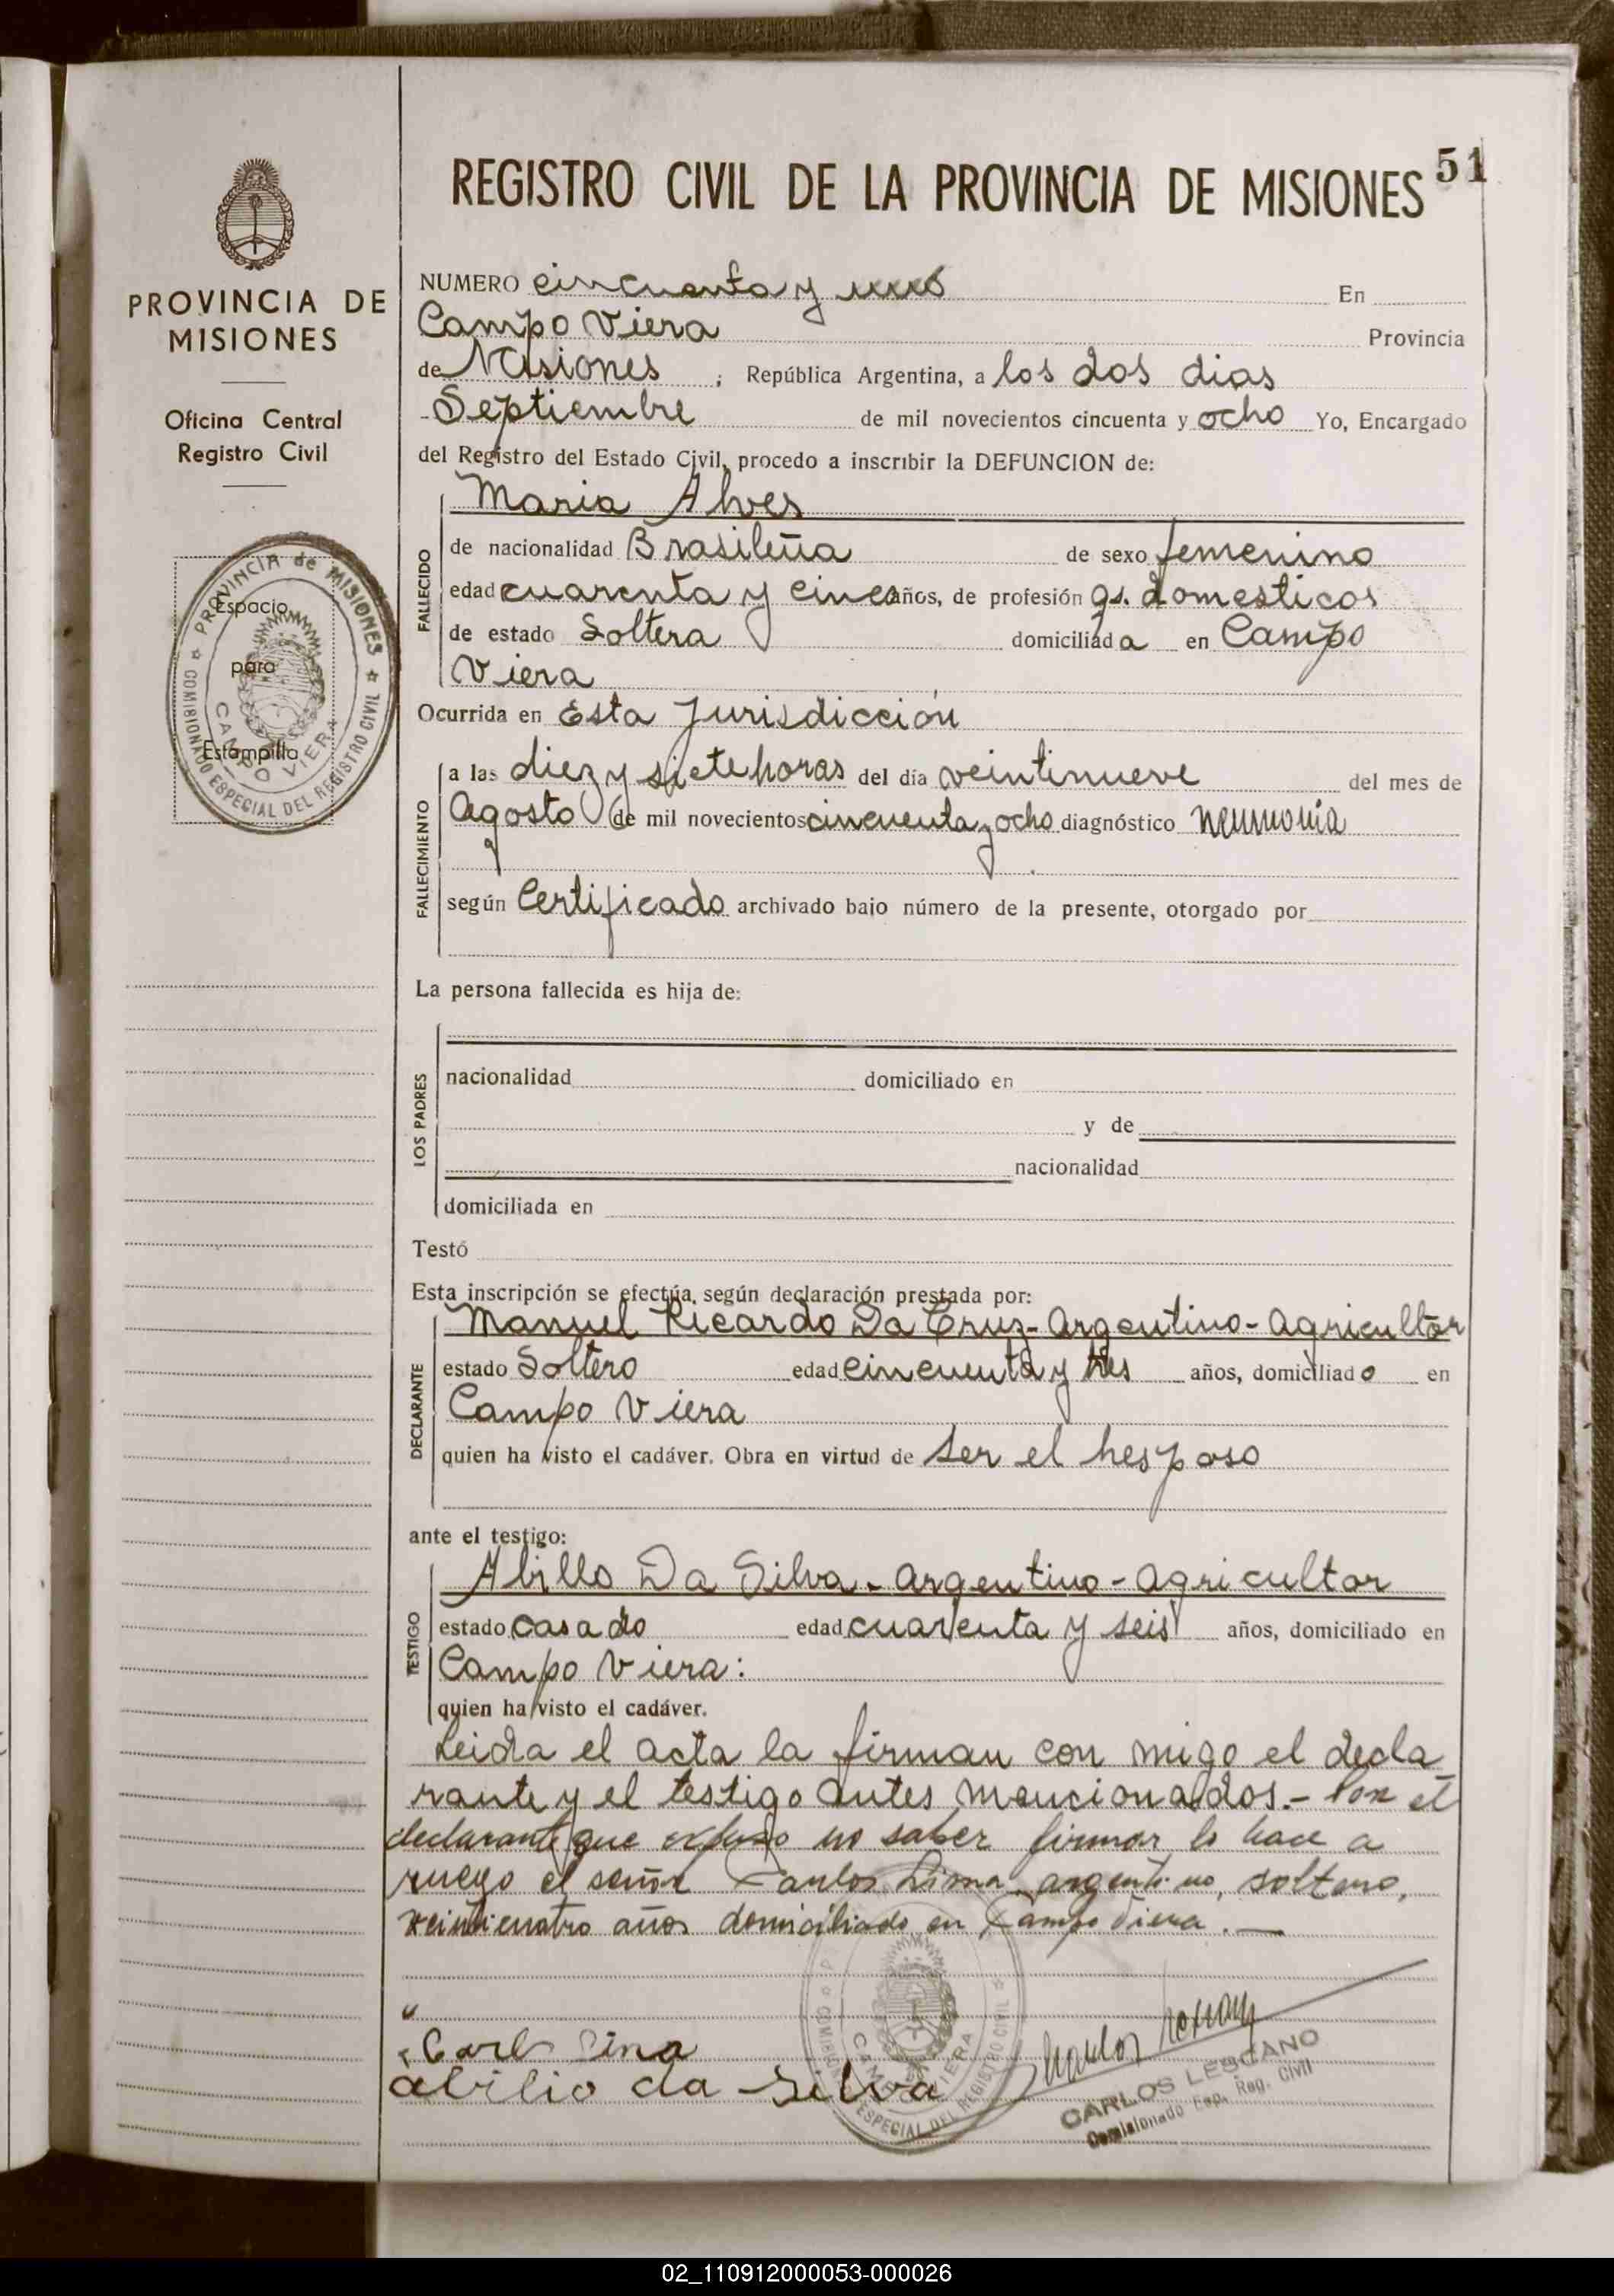 REGISTRO CIVIL DE LA PROVINCIA DE MISIONES 51
PROVINCIA DE
MISIONES
Oficina Central
Registro Civil
PROVINCIA de MISIONES
COMISIONADO ESPECIAL DEL REGISTRO CIVIL
CAMPO VIERA
Espacio
para
Estampilla
NUMERO cincuenta y uno En
Campo Viera Provincia
de Misiones ; República Argentina, a los dos dias
Septiembre de mil novecientos cincuenta y ocho Yo, Encargado
del Registro del Estado Civil, procedo a inscribir la DEFUNCION de:
FALLECIDO
Maria Alves
de nacionalidad Brasileña de sexo femenino
edad cuarenta y cinco años, de profesión qs. domesticos
de estado Soltera domiciliada en Campo
Viera
Ocurrida en Esta Jurisdicción
FALLECIMIENTO
a las diez y siete horas del día veintinueve del mes de
Agosto de mil novecientos cincuenta y ocho diagnóstico neumonia
según Certificado archivado bajo número de la presente, otorgado por
La persona fallecida es hija de:
LOS PADRES
nacionalidad domiciliado en
y de
nacionalidad
domiciliada en
Testó
Esta inscripción se efectúa, según declaración prestada por:
DECLARANTE
Manuel Ricardo Da Cruz - Argentino - Agricultor
estado Soltero edad cincuenta y tres años, domiciliado en
Campo Viera
quien ha visto el cadáver. Obra en virtud de ser el hesposo
ante el testigo:
TESTIGO
Abillo Da Silva - argentino - Agricultor
estado casado edad cuarenta y seis años, domiciliado en
Campo Viera:
quien ha visto el cadáver.
Leida el acta la firman con migo el decla
rante y el testigo antes mencionados.- Por el
declarante que expuso no saber firmar lo hace a
ruego el señor Carlos Lima, argentino, soltero,
veinticuatro años domiciliado en Campo Viera.—
Carl Lina
abilio da Silva
CAMPO VIERA
ESPECIAL DEL REGISTRO CIVIL
CARLOS LESCANO
Comisionado Esp. Reg. Civil
02_110912000053-000026